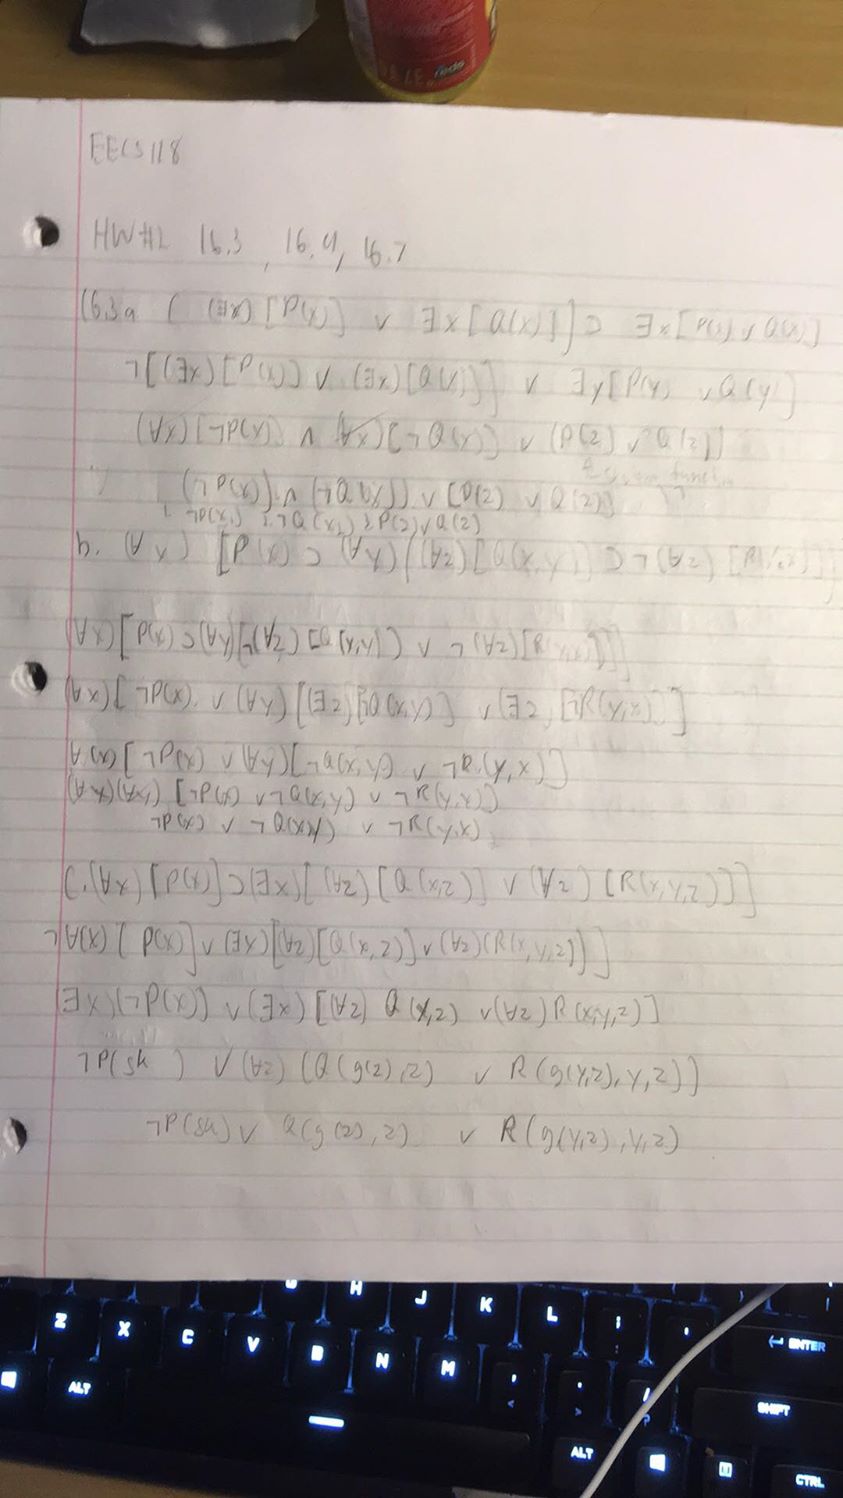 EECS118
HW#2 16.3, 16.4, 16.7
16.3a ( (∃x)[P(x)] ∨ ∃x[Q(x)]] ⊃ ∃x[P(x) ∨ Q(x)]
¬[(∃x)[P(x)] ∨ (∃x)[Q(x)]] ∨ ∃y[P(y) ∨ Q(y)]
(∀x)[¬P(x)] ∧ (∀x)[¬Q(x)] ∨ (P(z) ∨ Q(z))
(¬P(x)) ∧ (¬Q(x)) ∨ [P(z) ∨ Q(z)]
1 ¬P(x₁) ¬Q(x₂) P(z) ∨ Q(z)
b. (∀x) [P(x) ⊃ (∀y)[(∀z)[Q(x,y)] ⊃ ¬(∀z)
(∀x)[P(x) ⊃ (∀y)[¬(∀z)[Q(x,y)] ∨ ¬(∀z)[R(y,x)]]]
(∀x)[¬P(x) ∨ (∀y)[(∃z)[¬Q(x,y)] ∨ (∃z)[¬R(y,x)]]]
(∀x)[¬P(x) ∨ (∀y)[¬Q(x,y) ∨ ¬R(y,x)]]
(∀x)(∀y)[¬P(x) ∨ ¬Q(x,y) ∨ ¬R(y,x)]
¬P(x) ∨ ¬Q(x,y) ∨ ¬R(y,x)
C. (∀x)[P(x)] ⊃ (∃x)[(∀z)[Q(x,z)] ∨ (∀z)[R(x,y,z)]]
¬(∀x)[P(x)] ∨ (∃x)[(∀z)[Q(x,z)] ∨ (∀z)(R(x,y,z))]
(∃x)(¬P(x)) ∨ (∃x)[(∀z) Q(x,z) ∨ (∀z)R(x,y,z)]
¬P(sk) ∨ (∀z)(Q(g(z),z) ∨ R(g(y,z),y,z))
¬P(sk) ∨ Q(g(z),z) ∨ R(g(y,z),y,z)
H J K L ;
Z X C V B N M , . /
ENTER
ALT SHIFT
ALT CTRL